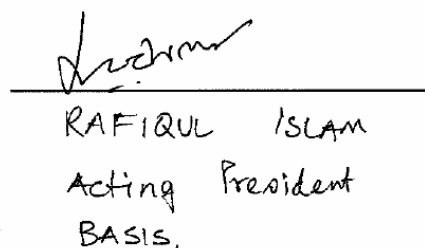 RAFIQUL ISLAM
Acting President
BASIS.